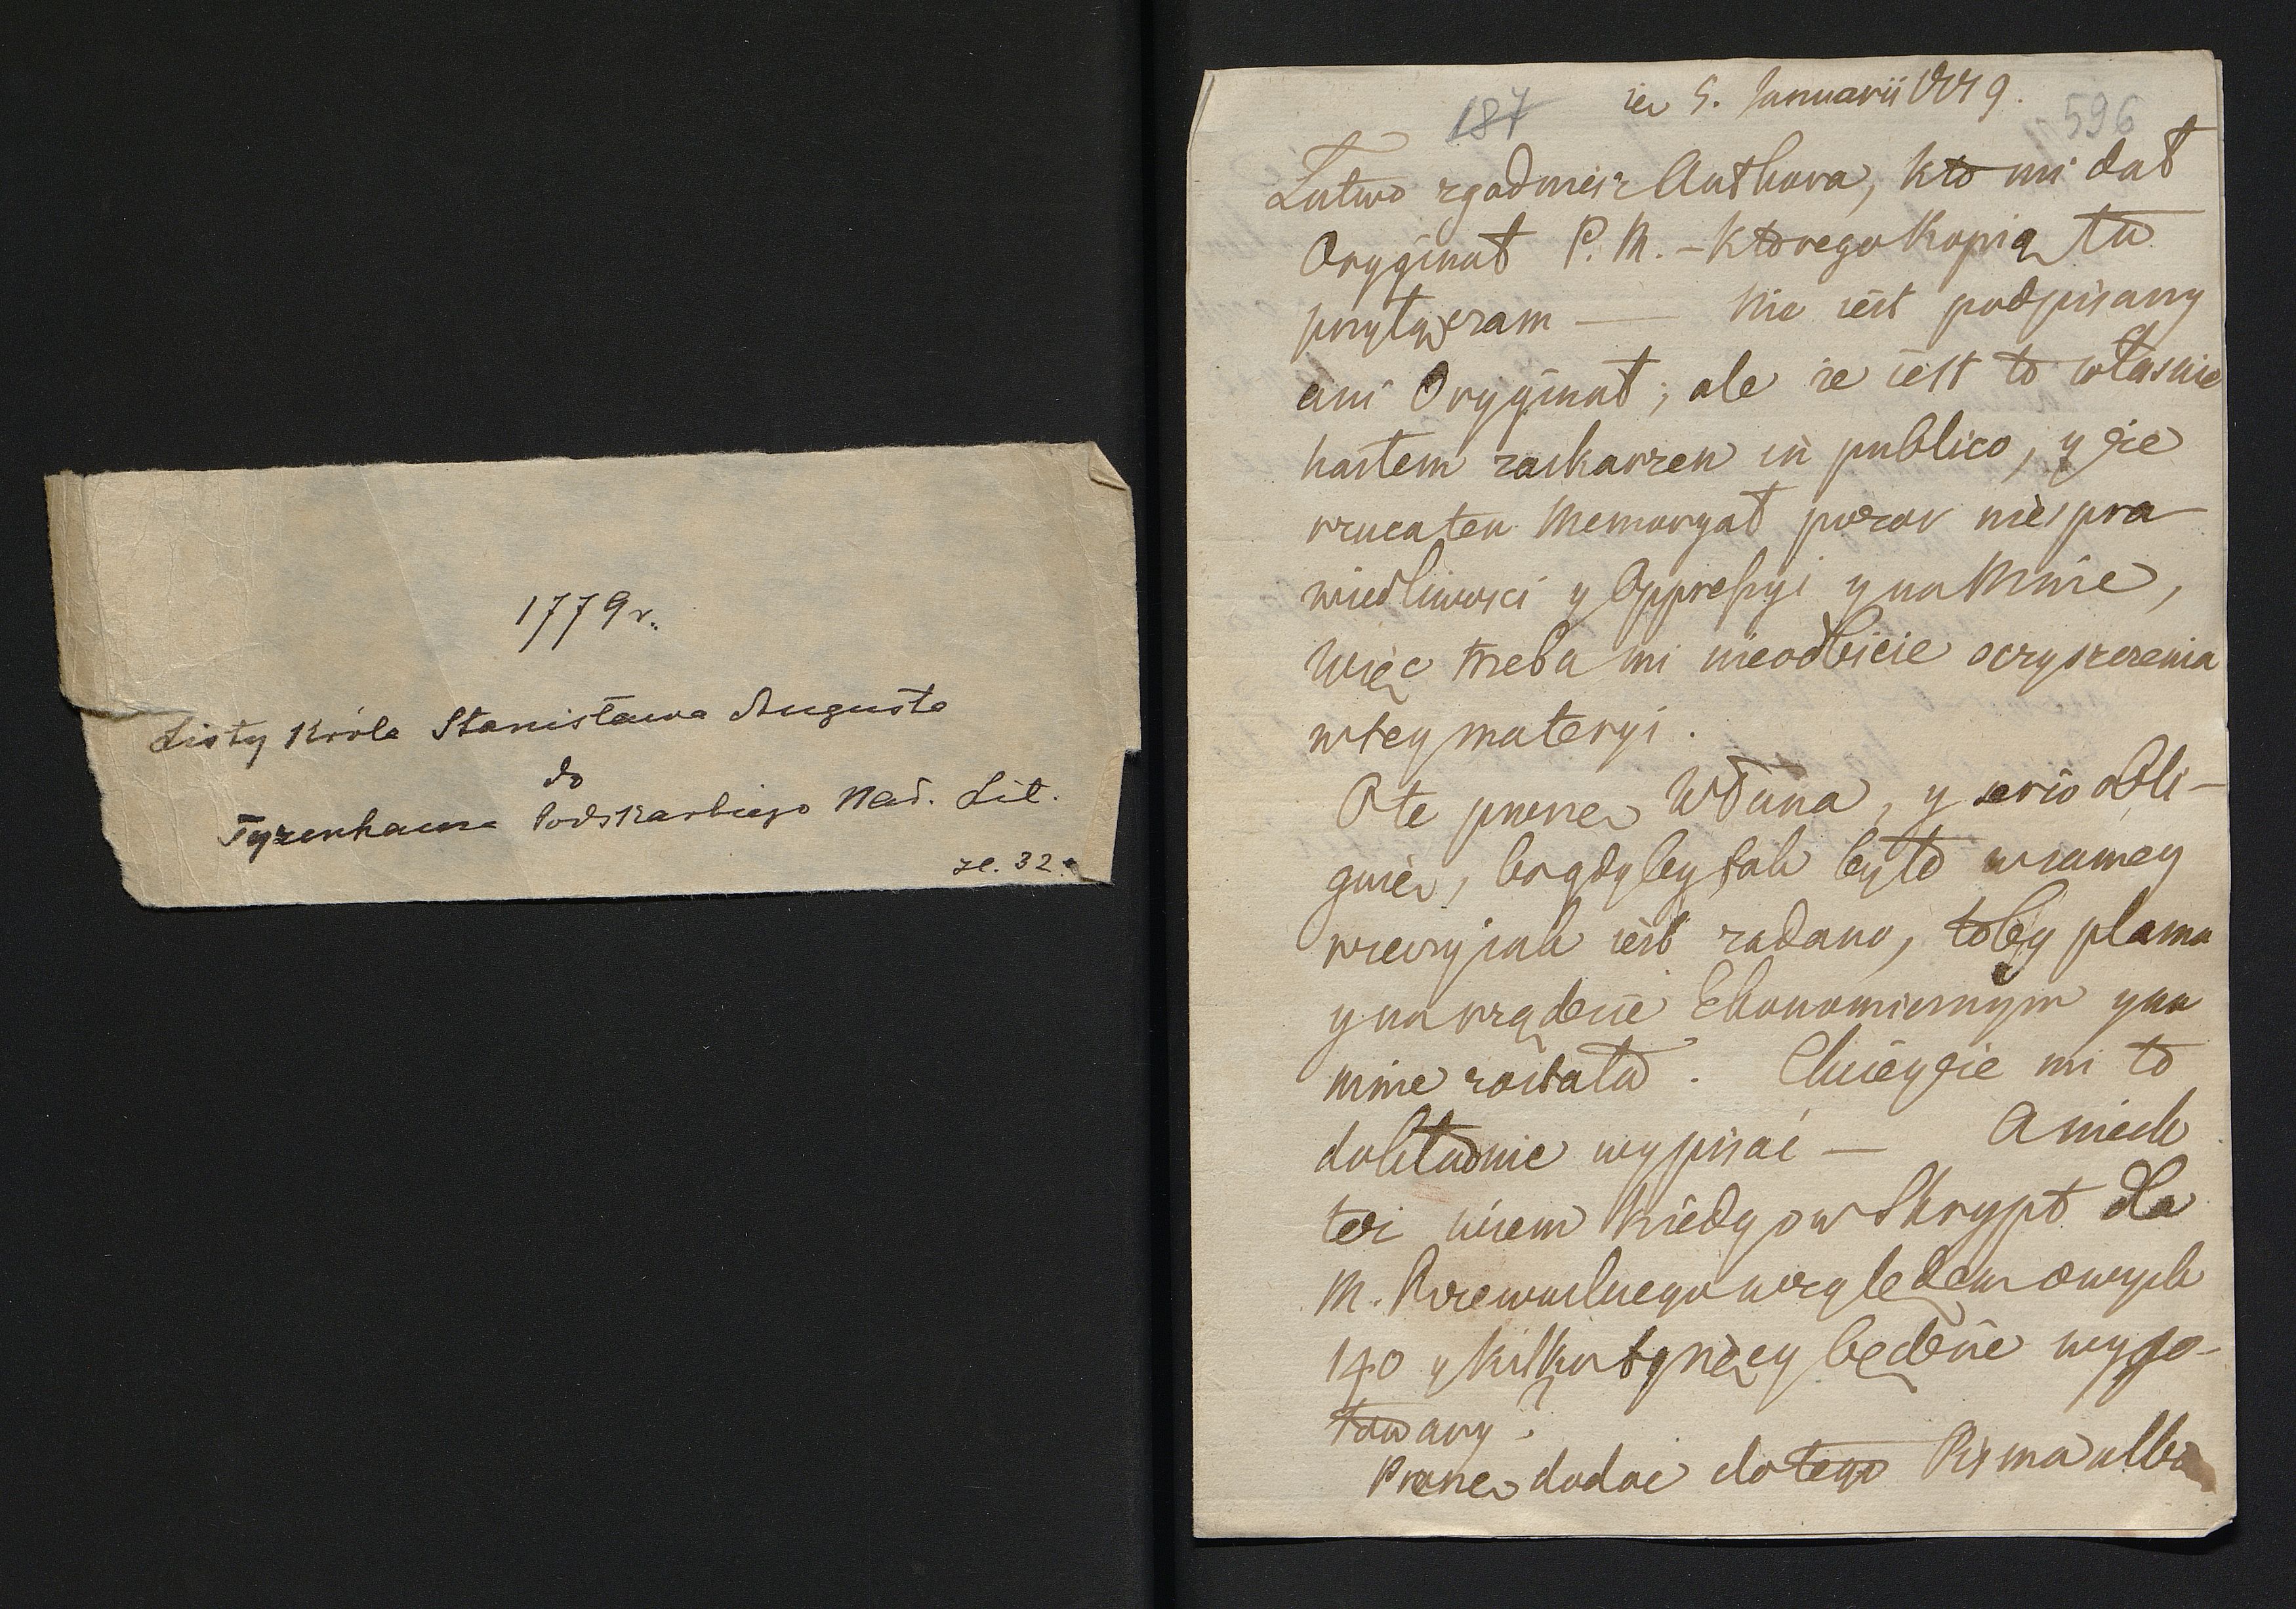 1779 r.
Listy Króla Stanisława Augusta
do
Tyzenhauza Podskarbiego Nad. Lit.
sz. 32.
187
5. Januarii 1779.
596
Łatwo zgadniesz Authora, kto mi dał
Oryginał P. M. - ktorego Kopią tu
przyłączam — Nie iest podpisany
ani Oryginał; ale że iest to własnie
hastem zaskarzen in publico, y że
rzuca ten Memoryał pozor niespra
wiedliwosci y Oppressyi y na Mnie,
Więc trzeba mi nieodbicie oczyszczenia
w tey materyi.
O te proszę WPana, y serio obli-
guię, bo gdyby tak było w samey
rzeczy iak iest zadano, toby plama
y na rządzie Ekonomicznym y na
mnie została. Chcieyże mi to
dokładnie wypisać — A niech
też wiem kiedy ow Skrypt dla
M. Rzewuskiego względem owych
140 y kilku tysięcy będzie wygo-
towany.
Proszę dodać do tego Pisma albo